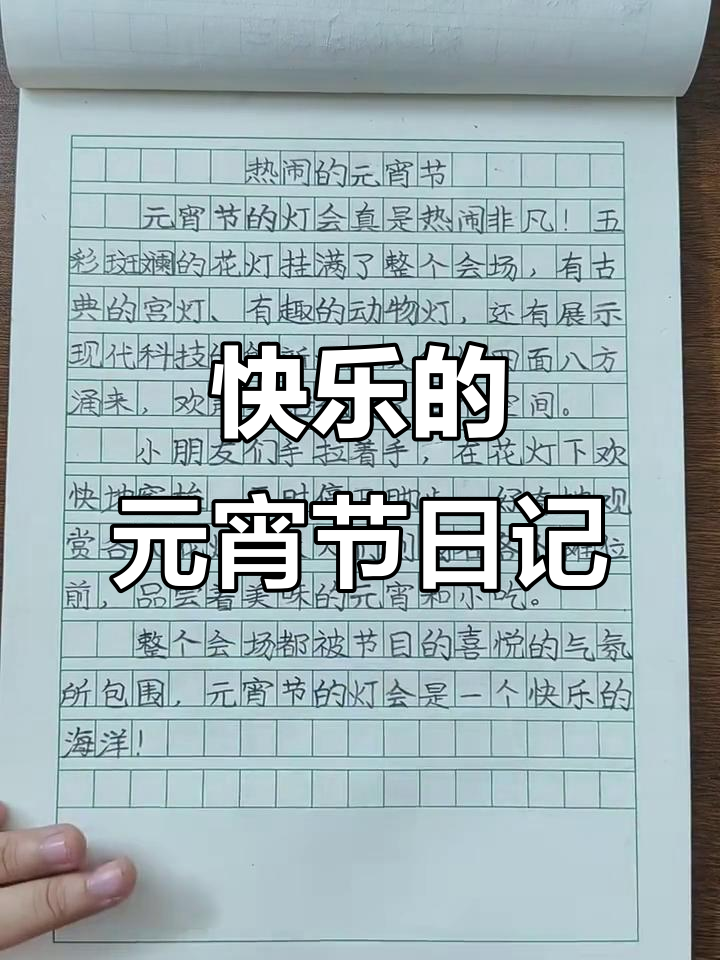 热闹的元宵节
元宵节的灯会真是热闹非凡！五
彩斑斓的花灯挂满了整个会场，有古
典的宫灯、有趣的动物灯，还有展示
现代科技 四面八方
快乐的
涌来，欢 空间。
小朋友们手拉着手，在花灯下欢
快地穿梭 观
元宵节日记
赏各 摊位
前，品尝着美味的元宵和小吃。
整个会场都被节目的喜悦的气氛
所包围，元宵节的灯会是一个快乐的
海洋！